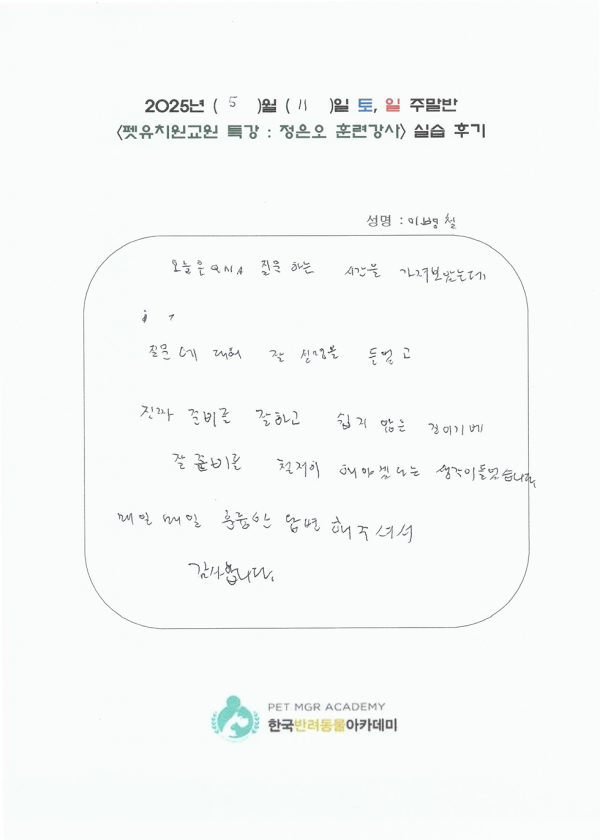 2025년 ( 5 )월 ( 11 )일 토, 일 주말반
<펫유치원교원 특강 : 정은오 훈련강사> 실습 후기
성명 :
오늘은 QNA 질문 하는 시간을 가져보았는데
질문에 대해 잘 설명을 들었고
진짜 준비를 잘하고 쉽지 않은 길이기에
잘 준비를 철저히 해야겠다는 생각이들었습니다.
매일매일 훌륭한 답변 해주셔서
감사합니다.
PET MGR ACADEMY
한국반려동물아카데미